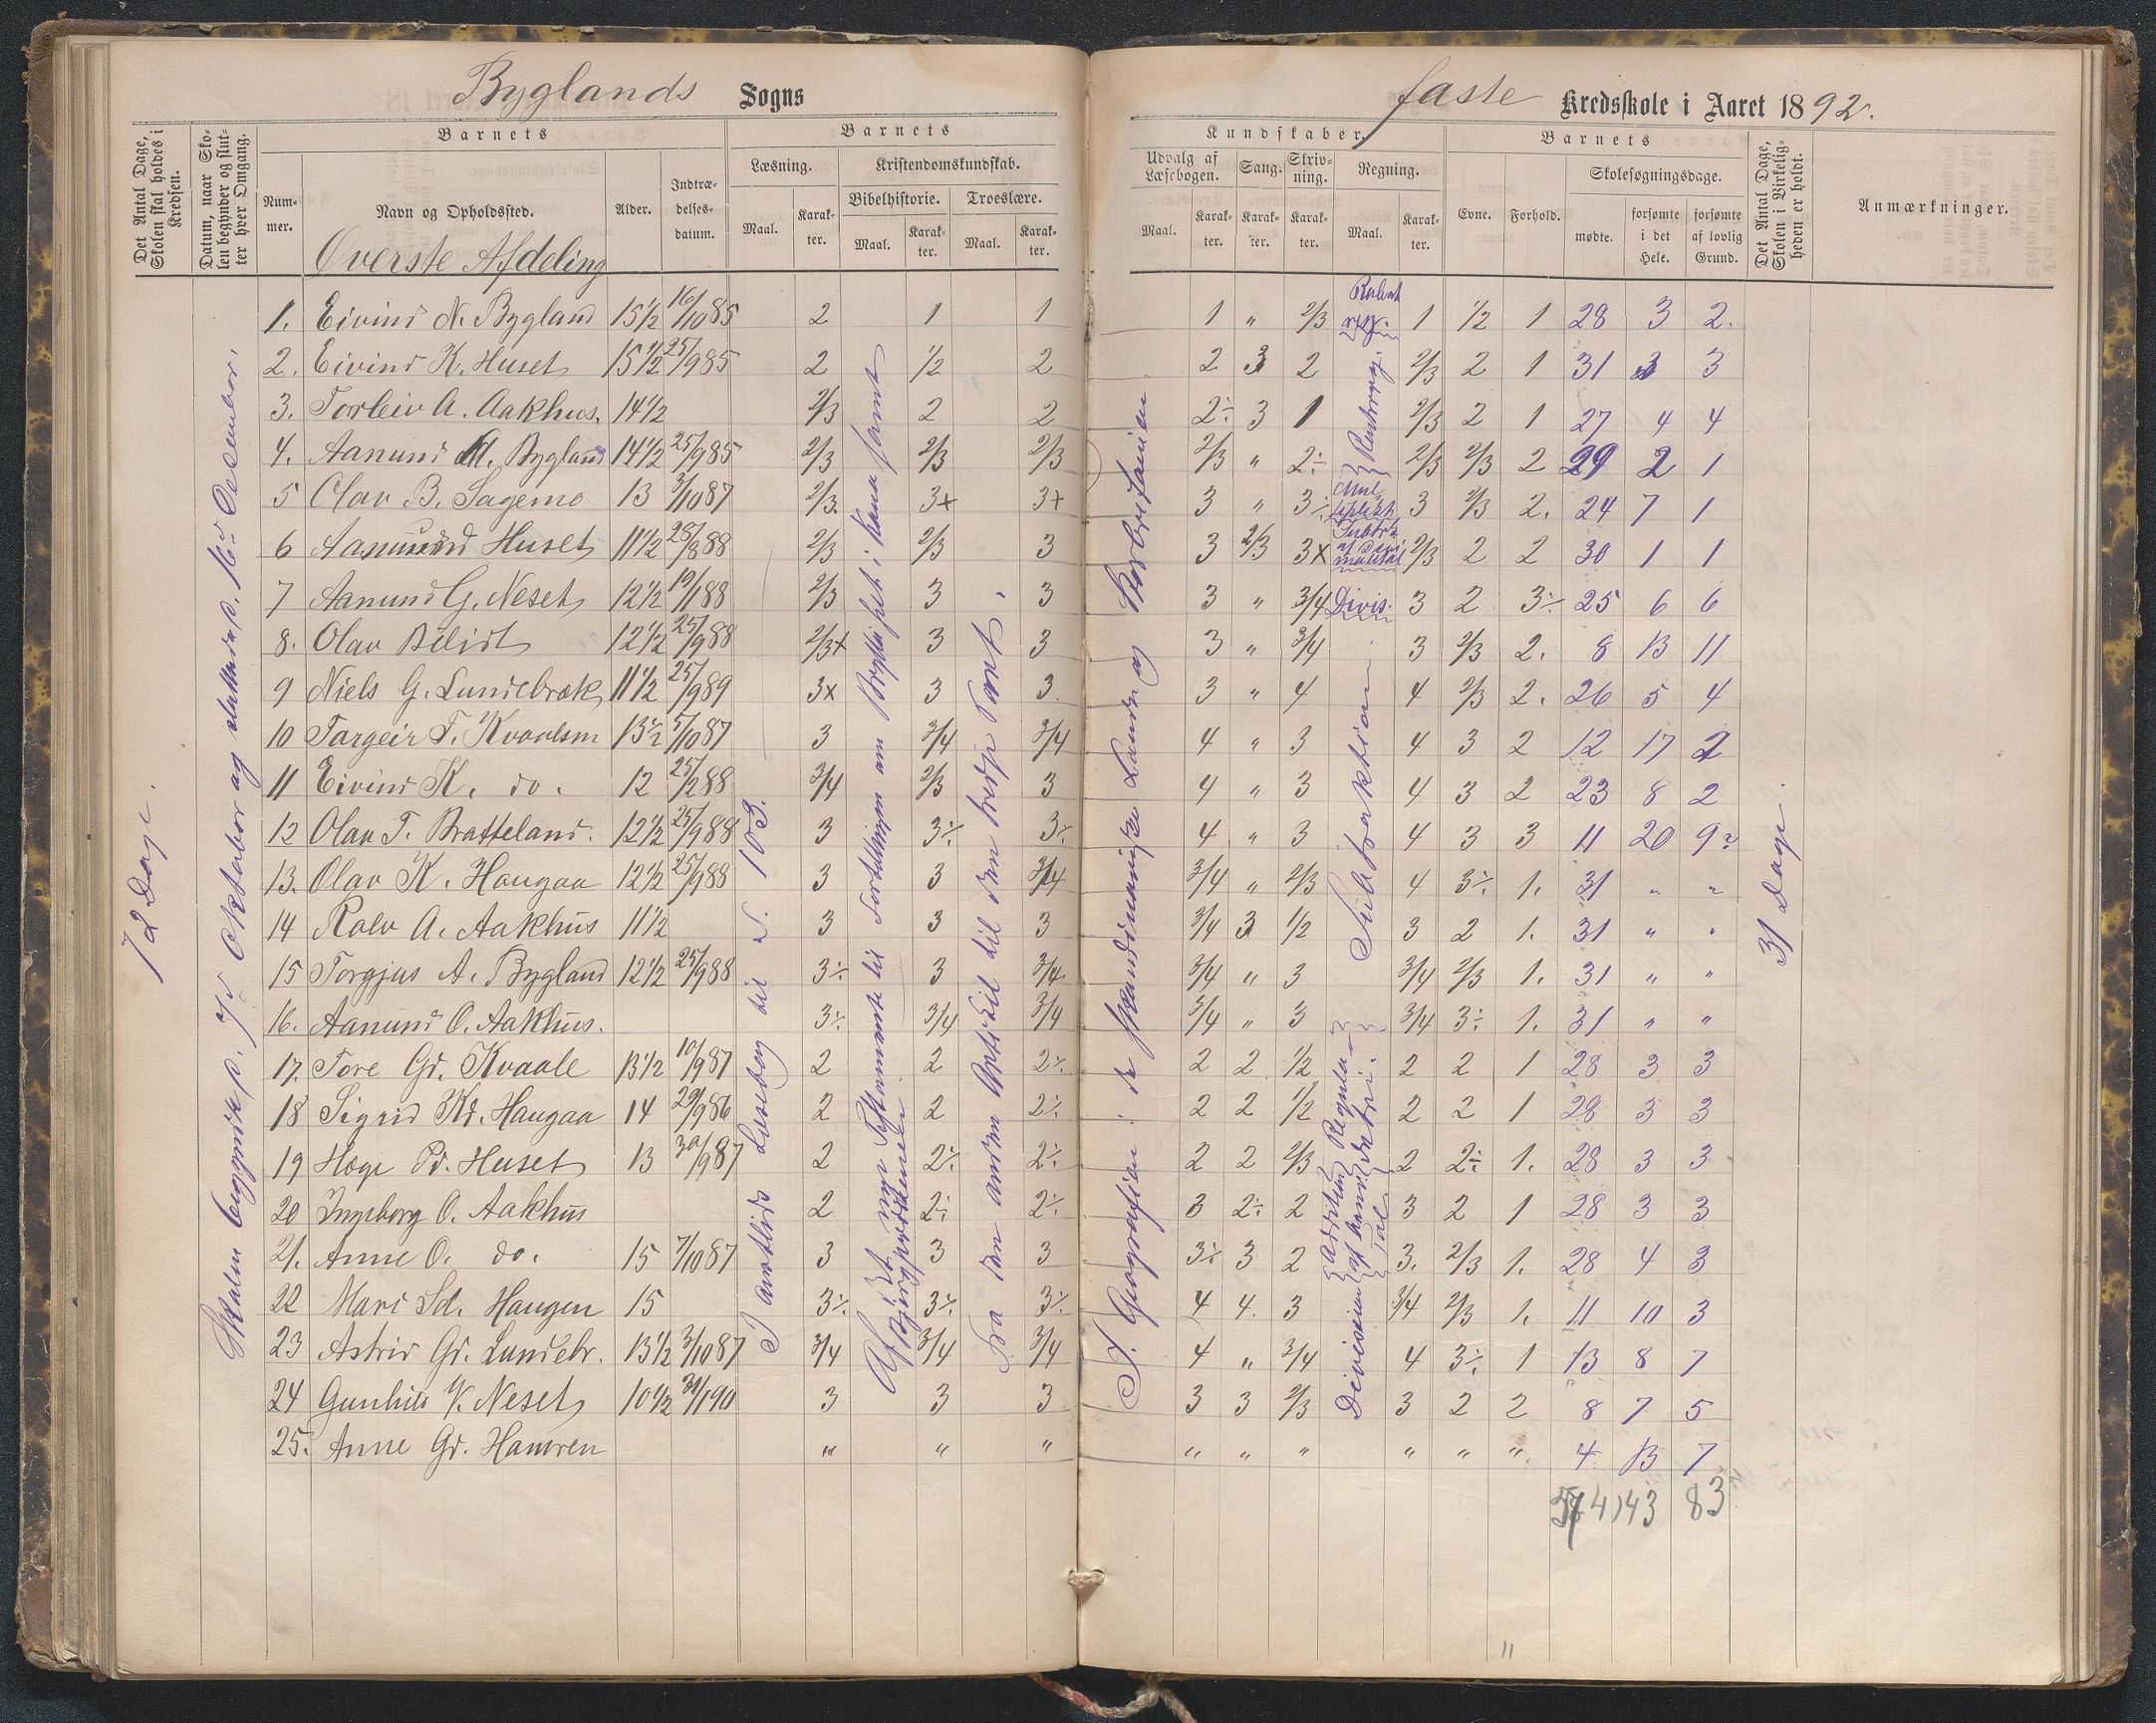 Byglands Sogns
faste Kredsskole i Aaret 1892.
Det Antal Dage, Skolen skal holdes i Kredsen.
Datum, naar Skolen begynder og slutter hver Omgang.
Barnets
Nummer.
Navn og Opholdssted.
Alder.
Indtrædelsesdatum.
Barnets
Læsning.
Maal.
Karakter.
Kristendomskundskab.
Bibelhistorie.
Maal.
Karakter.
Troeslære.
Maal.
Karakter.
Kundskaber.
Udvalg af Læsebogen.
Maal.
Karakter.
Sang.
Karakter.
Skrivning.
Karakter.
Regning.
Maal.
Karakter.
Barnets
Evne.
Forhold.
Skolesøgningsdage.
mødte.
forsømte i det Hele.
forsømte af lovlig Grund.
Det Antal Dage, Skolen i Virkeligheden er holdt.
Anmærkninger.
Øverste Afdeling
1. Eivind N. Bygland 15 1/2 16/10 85 2 1 1 1 " 2/3 1 1/2 1 28 3 2.
2. Eivind K. Huset 15 1/2 25/9 85 2 1/2 2 2 3 2 2/3 2 1 31 3 3
3. Torleiv A. Aakhus. 14 1/2 2/3 2 2 2÷ 3 1 2/3 2 1 27 4 4
4. Aanund M. Bygland 14 1/2 25/9 85 2/3 2/3 2/3 2/3 " 2÷ 2/3 2/3 2 29 2 1
5 Olav B. Sagemo 13 3/10 87 2/3. 3+ 3+ 3 " 3÷ 3 2/3 2. 24 7 1
6 Aanund Huset 11 1/2 28/8 88 2/3 2/3 3 3 2/3 3x 2/3 2 2 30 1 1
7 Aanund G. Neset 12 1/2 19/1 88 2/3 3 3 3 " 3/4 Divis. 3 2 3÷ 25 6 6
8. Olav Belidt 12 1/2 25/9 88 2/3+ 3 3 3 " 3/4 3 2/3 2. 8 13 11
9 Niels G. Lundebræk 11 1/2 25/9 89 3x 3 3. 3 " 4 4 2/3 2. 26 5 4
10 Targeir T. Kvaalsm 13 1/2 5/10 87 3 3/4 3/4 4 " 3 4 3 2 12 17 2
11 Eivind K. do. 12 25/2 88 3/4 2/3 3 4 " 3 4 3 2 23 8 2
12 Olav T. Bratteland. 12 1/2 25/9 88 3 3÷ 3÷ 4 " 3 4 3 3 11 20 9?
13. Olav K. Haugaa 12 1/2 25/9 88 3 3 3/4 3/4 " 2/3 4 3÷ 1. 31 " "
14 Rolv A. Aakhus 11 1/2 3 3 3 3/4 3 1/2 3 2 1. 31 " "
15 Torgjus A. Bygland 12 1/2 25/9 88 3÷ 3 3/4 3/4 " 3 3/4 2/3 1. 31 " "
16. Aanund O. Aakhus. 3÷ 3/4 3/4 3/4 " 3 3/4 3÷ 1. 31 " "
17. Tore Gd. Kvaale 13 1/2 10/9 87 2 2 2÷ 2 2 1/2 2 2 1 28 3 3
18 Sigrid Kd. Haugaa 14 29/9 86 2 2 2÷ 2 2 1/2 2 2 1 28 3 3
19 Hæge Pd. Huset 13 30/9 87 2 2÷ 2÷ 2 2 2/3 2 2÷ 1. 28 3 3
20 Ingeborg O. Aakhus 2 2÷ 2÷ 3 2÷ 2 3 2 1 28 3 3
21. Anne O. do. 15 7/10 87 3 3 3 3÷ 3 2 3. 2/3 1. 28 4 3
22 Mari Sd. Haugen 15 3÷ 3÷ 3÷ 4 4. 3 3/4 2/3 1. 11 10 3
23 Astrid Gd. Lundebr. 13 1/2 3/10 87 3/4 3/4 3/4 4 " 3/4 4 3÷ 1 13 8 7
24 Gunhild V. Neset 10 1/2 31/1 90 3 3 3 3 3 2/3 3 2 2 8 7 5
25. Anne Gd. Hamren " " " " " " " " " 4 13 7
143 83
72 Dage.
Skolen begyndte p. 7d Oktober og sluttede p. 16d December.
I Austlids Læsebog til S. 103.
Af det nye Testamente til Fortællingen om Brylluppet i Kana samt
Af Bjergprædikenen
Fra den anden Artikel til den tredje Part.
I Geografien: de skandinaviske Lande og Storbritanien
Subtraktion
Division
31 Dage.